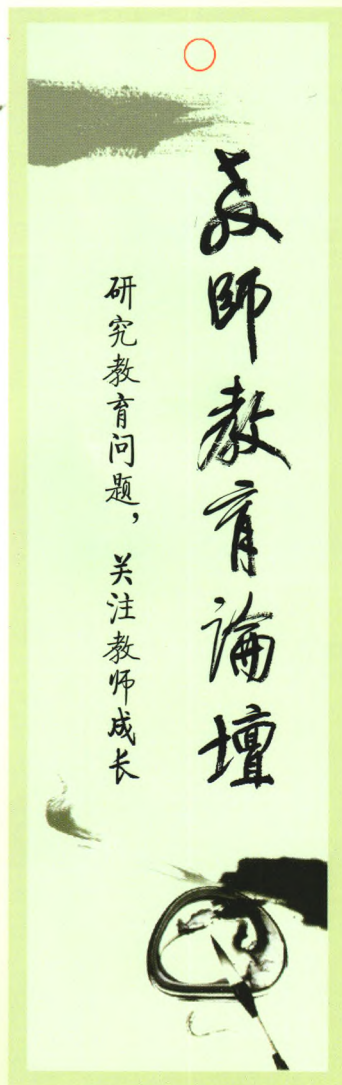 教師教育論壇
研究教育问题，关注教师成长